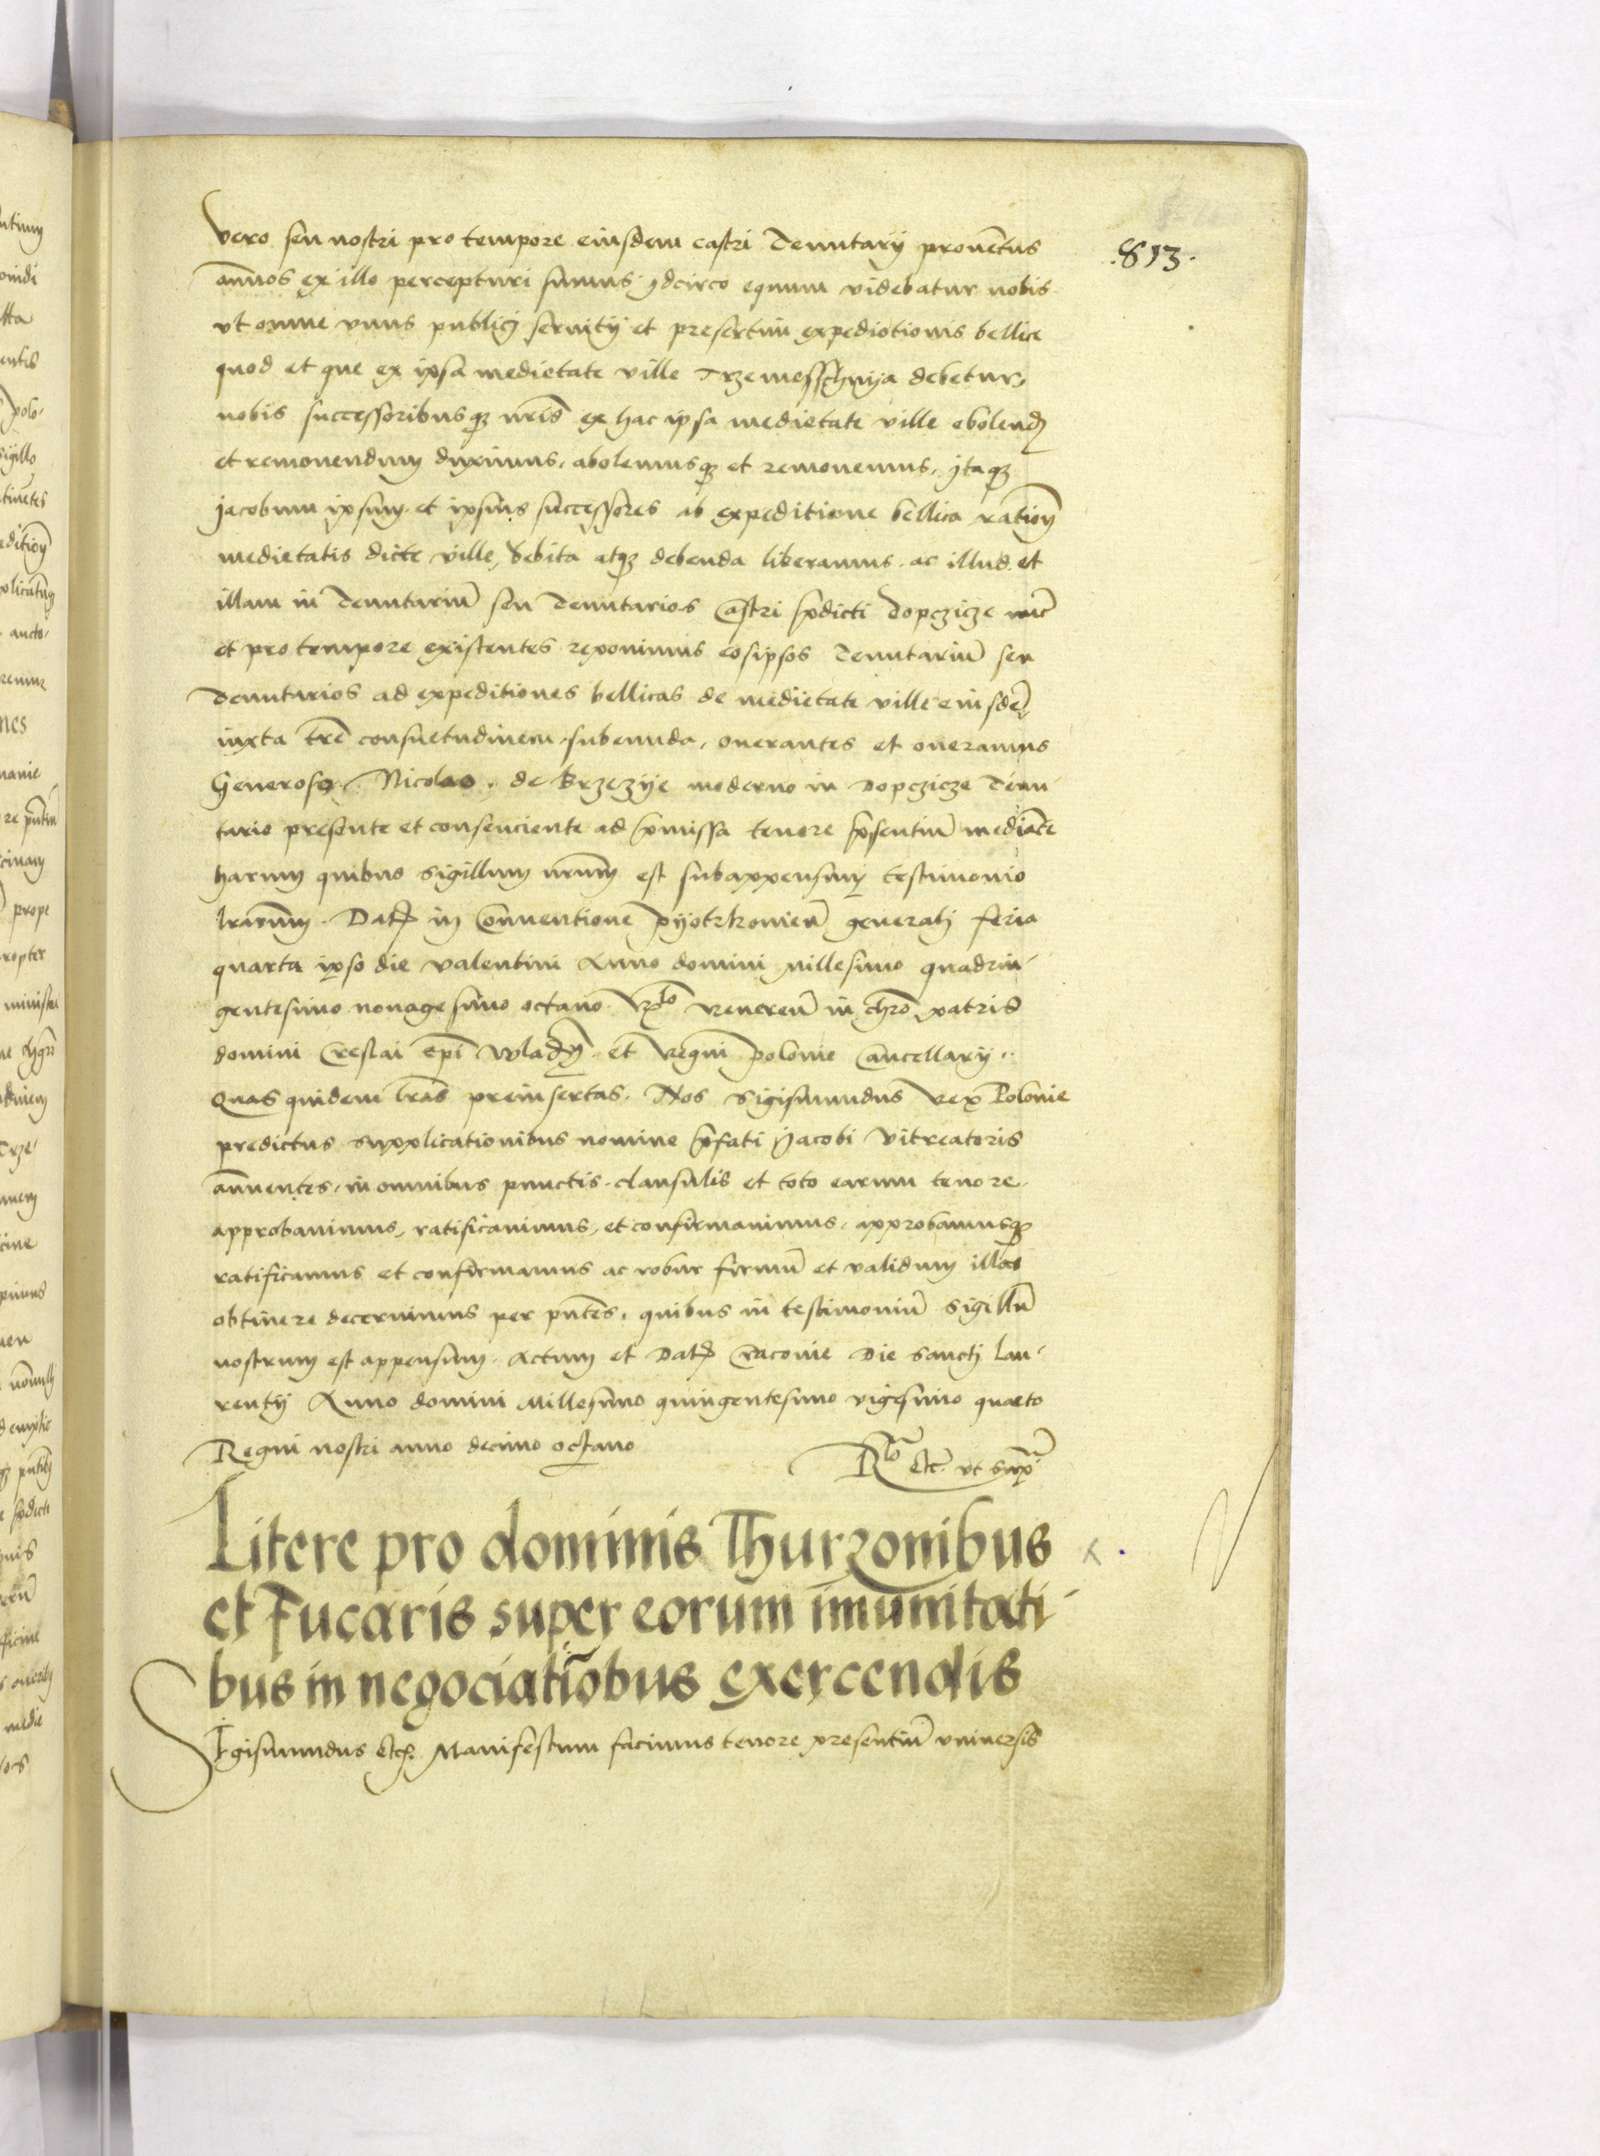 .813.
vero seu nostri pro tempore eiusdem castri Tenutarij proventus
annuos ex illo percepturi sumus. ydcirco equum videbatur nobis
ut omne onus publicj servitij et presertim expeditionis bellice
quod et que ex ipsa medietate ville Trzemesschnya debetur,
nobis successoribusq3 nris ex hac ipsa medietate ville abolend
et removendum duximus, abolemusq3 et removemus, ytaq3
Jacobum ipsum et ipsius successores ab expeditione bellica ration
medietatis dicte ville, debita atq3 debenda liberamus. ac illud et
illam in Tenutariu seu Tenutarios Castri pdicti Dopczicze nuc
et pro tempore existentes reponimus eosipsos Tenutariu seu
Tenutarios ad expeditiones bellicas de medietate ville eiusde
iuxta tre consuetudinem subeunda, onerantes et oneramus
Generoso Nicolao de Brzezye moderno in Dopczicze Tenu-
tario presente et consenciente ad pmissa tenore psentiu mediate
harum quibus sigillum nrum est subappensum testimonio
lrarum. Dat in Conventione pyotrkovien generalj feria
quarta ipso die valentini Anno domini millesimo quadrin-
gentesimo nonagesimo octavo. Rto Reveren in chro patris
domini Creslai Epi Wladn et Regni polonie Cancellarij.
Quas quidem lras preinsertas. Nos Sigismundus Rex Polonie
predictus supplicationibus nomine pfati Jacobi Vitreatoris
annuentes, in omnibus punctis clausulis et toto earum tenore.
approbavimus, ratificavimus, et confirmavimus, approbamusq3
ratificamus et confirmamus ac robur firmu et validum illas
obtinere decernimus per pntes. quibus in testimoniu sigillu
nostrum est appensum. Actum et Dat Cracovie Die sanctj Lau-
rentij Anno domini Millesimo quingentesimo vigesimo quarto
Regni nostri anno decimo octavo
Rto etc. ut supra
Litere pro dominis Thurzonibus
et Fucaris super eorum imunitati-
bus in negociatiobus exercendis
Sigismundus etc. Manifestum facimus tenore presentiu universis